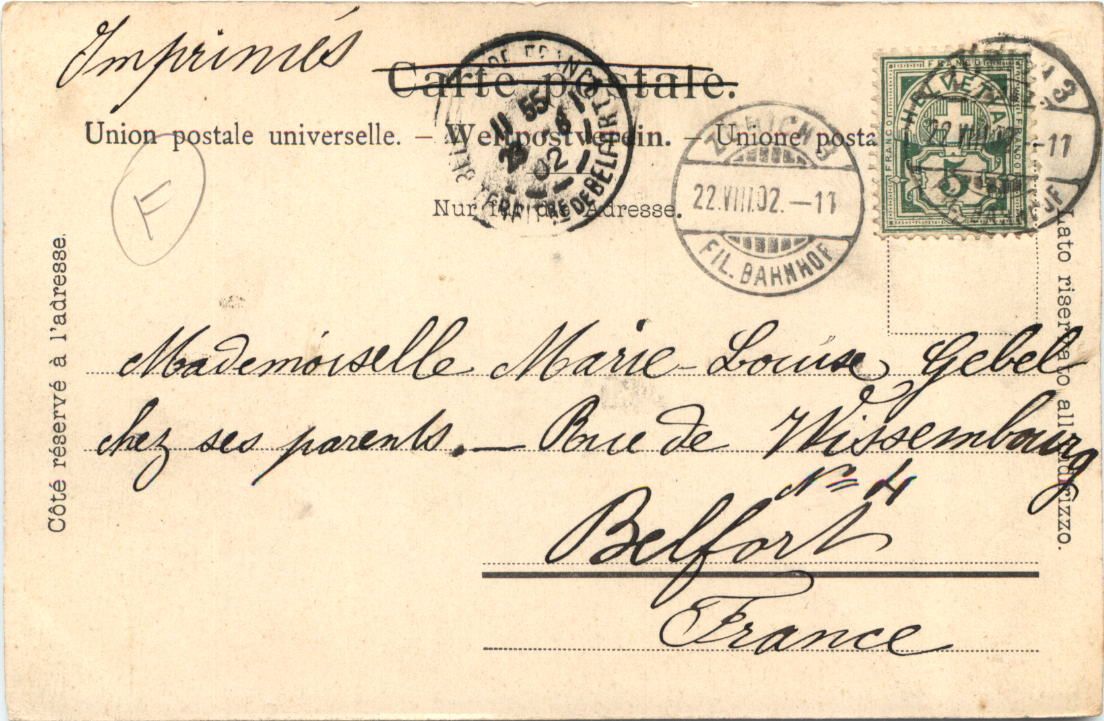 Imprimés
Carte postale.
Union postale universelle. – Weltpostverein. – Unione posta
Nur für die Adresse.
Côté réservé à l'adresse.
Lato riservato all'indirizzo.
F
11 55
23 8
02
TERRRE DE BELFORT
ZÜRICH 3
22.VIII.02. – 11
FIL. BAHNHOF
FRANCO
HELVETIA
FRANCO
FRANCO
5
3
22.VIII.
– 11
Mademoiselle Marie-Louise Gebel
chez ses parents. – Rue de Wissembourg
No 4
Belfort
France